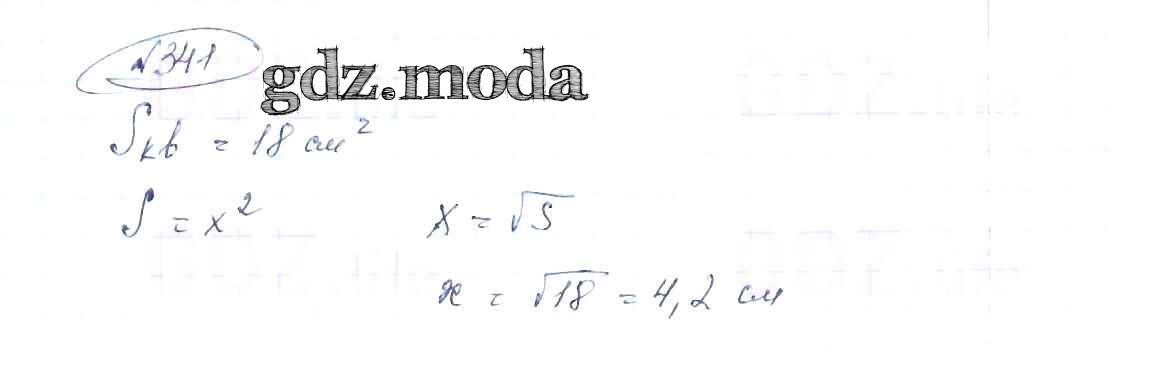 №341
gdz.moda
Sкв = 18 см²
S = x²
x = √S
x = √18 = 4,2 см